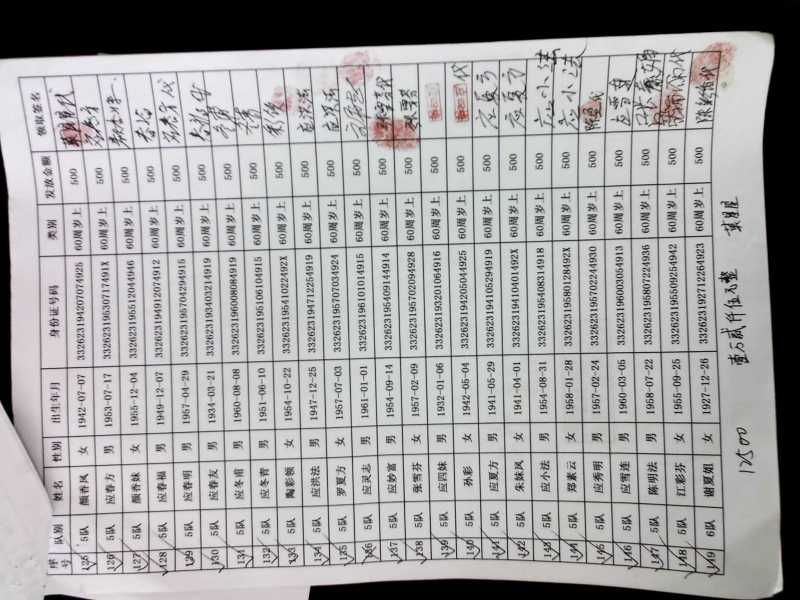 序号 队别 姓名 性别 出生年月 身份证号码 类别 发放金额 领取签名
125 5队 颜香风 女 1942-07-07 332623194207074925 60周岁上 500
126 5队 应春方 男 1953-07-17 33262319530717491X 60周岁上 500
127 5队 颜香妹 女 1955-12-04 332623195512044946 60周岁上 500
128 5队 应春福 男 1949-12-07 332623194912074912 60周岁上 500
129 5队 应春明 男 1957-04-29 332623195704294915 60周岁上 500
130 5队 应春友 男 1934-03-21 332623193403214919 60周岁上 500
131 5队 应冬甫 男 1960-08-08 332623196008084919 60周岁上 500
132 5队 应冬青 男 1951-06-10 332623195106104915 60周岁上 500
133 5队 陶彩顿 女 1954-10-22 33262319541022492X 60周岁上 500
134 5队 应洪法 男 1947-12-25 332623194712254919 60周岁上 500 应洪法
135 5队 罗夏方 女 1957-07-03 332623195707034924 60周岁上 500 应洪法
136 5队 应灵志 男 1961-01-01 332623196101014915 60周岁上 500
137 5队 应妙富 男 1954-09-14 332623195409144914 60周岁上 500 张雪芬代
138 5队 张雪芬 女 1957-02-09 332623195702094928 60周岁上 500 张雪芬
139 5队 应四妹 男 1932-01-06 332623193201064916 60周岁上 500
140 5队 孙彩 女 1942-05-04 332623194205044925 60周岁上 500 代
141 5队 应夏方 男 1941-05-29 332623194105294919 60周岁上 500 应夏方
142 5队 朱妹凤 女 1941-04-01 33262319410401492X 60周岁上 500 应夏方
143 5队 应小法 男 1954-08-31 332623195408314918 60周岁上 500 应小法
144 5队 郑素云 女 1958-01-28 33262319580128492X 60周岁上 500 应小法
145 5队 应秀明 男 1957-02-24 332623195702244930 60周岁上 500
146 5队 应雪连 男 1960-03-05 332623196003054913 60周岁上 500
147 5队 陈明法 男 1958-07-22 332623195807224936 60周岁上 500
148 5队 江彩芬 女 1955-09-25 332623195509254942 60周岁上 500
149 6队 谢夏娟 女 1927-12-26 332623192712264923 60周岁上 500
12500 壹万贰仟伍元整